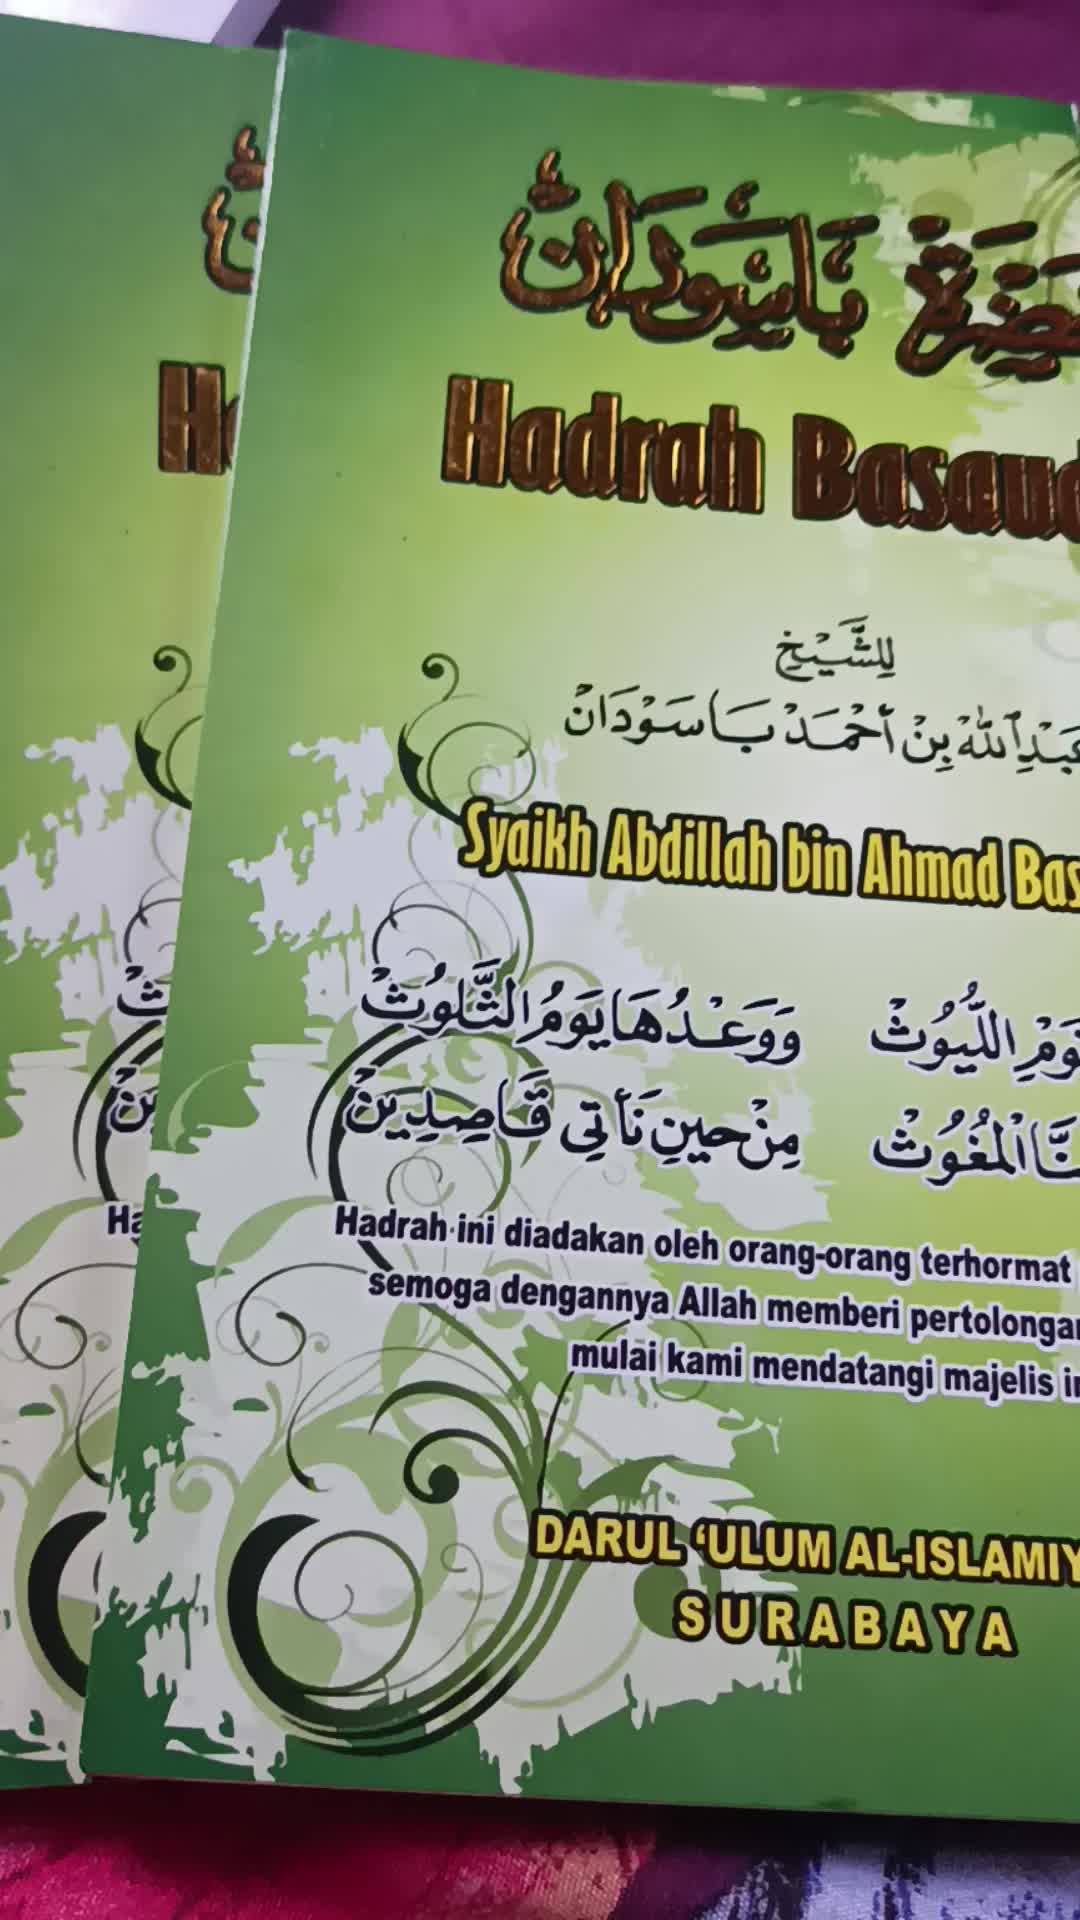 بَاسَوْدَانْ
Hadrah
لِلشَّيْخِ
اللهِ بِنْ أَحْمَدْ بَاسَوْدَانْ
Syaikh Abdillah bin Ahmad
اللُّيُوثْ وَوَعْدُهَا يَوْمُ الثَّلُوثْ
الْمُغُوثْ مِنْ حِينِ نَأْتِي قَاصِدِينْ
Hadrah ini diadakan oleh orang-orang terhormat
semoga dengannya Allah memberi
mulai kami mendatangi majelis
DARUL ‘ULUM
SURABAYA